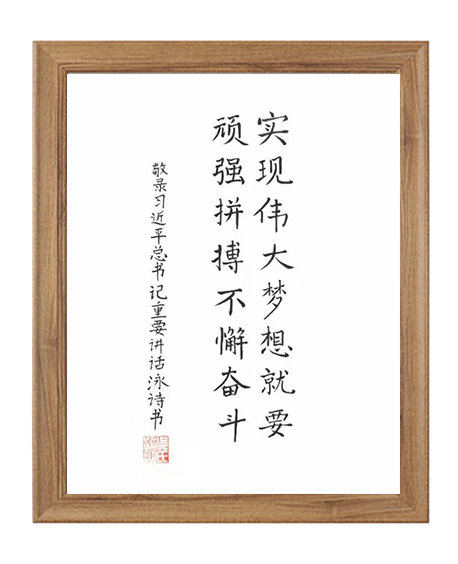 实现伟大梦想就要
顽强拼搏不懈奋斗
敬录习近平总书记重要讲话泳诗书